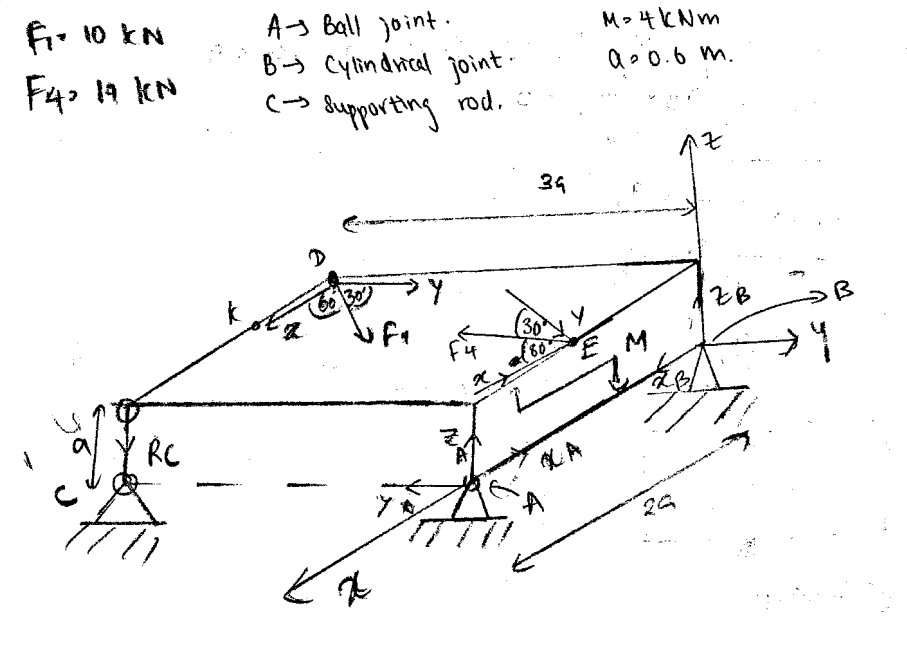 F₁= 10 kN
F4= 19 kN
A→ Ball joint.
B→ Cylindrical joint.
C→ Supporting rod.
M= 4 kNm
a=0.6 m.
Z
3a
D
60°
30°
Y
K
x
F1
ZB
B
30°
Y
F4
60°
E
M
x
y
xB
a
RC
C
ZA
xA
YA
A
2a
x